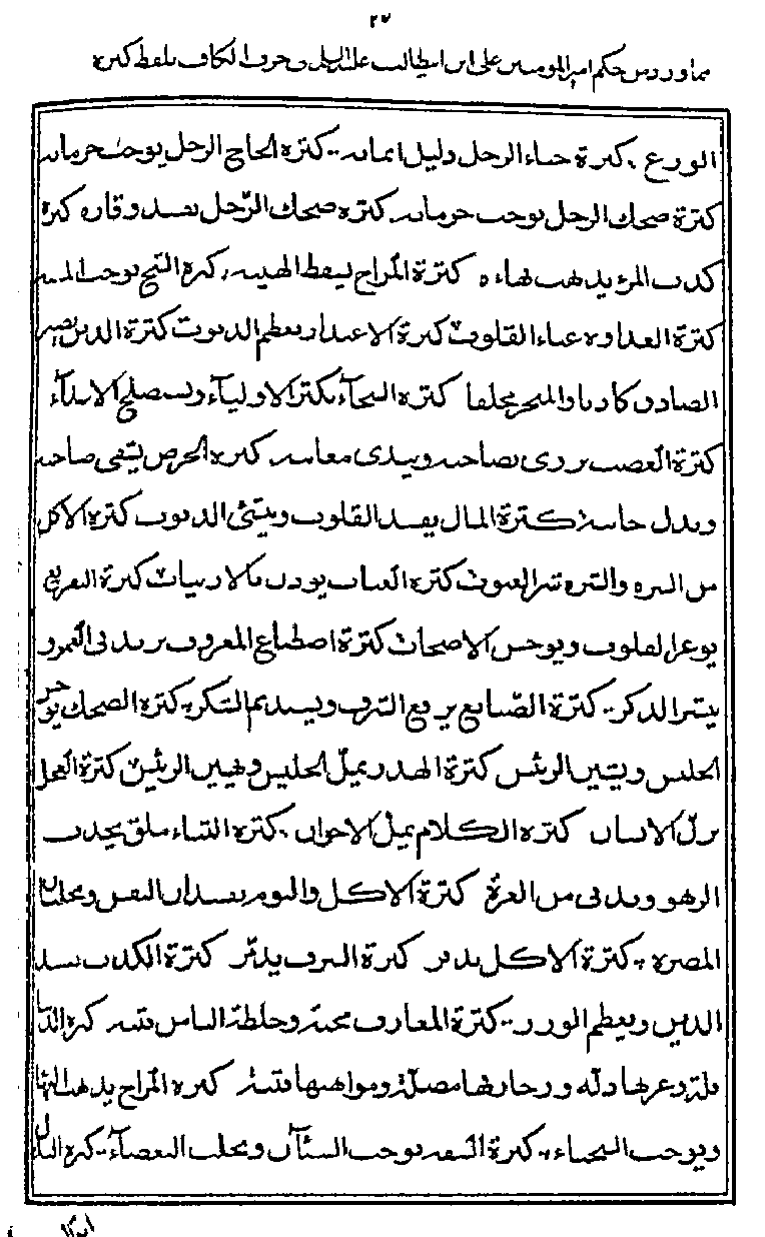 ٢٧
مما ورد من حكم امير المومنين علي ابن ابي طالب عليه السلام في حرف الكاف بلفظ كثرة
الورع . كثرة حياء الرجل دليل ايمانه .. كثرة الحاح الرجل يوجب حرمانه
كثرة ضحك الرجل يوجب حرمانه كثرة ضحك الرّجل يفسد وقاره كثرة
كذب المرء يذهب بهاءه كثرة المزاح يسقط الهيبه . كثرة الشح يوجب المسبه
كثرة العداوه عناء القلوب كثرة الاعتذار يعظم الذنوب كثرة الدين يصير
الصادق كاذبا والمنجز مخلفا كثرة السخاء يكثر الاولياء ويستصلح الاعداء
كثرة الغضب يزري بصاحبه ويبدي معايبه كثرة الحرص يشقي صاحبه
ويذل جانبه كثرة المال يفسد القلوب وينشئ الذنوب كثرة الاكل
من الشره والشره شر العيوب كثرة العتاب يوذن بالارتياب كثرة التقريع
يوغر القلوب ويوحش الاصحاب كثرة اصطناع المعروف يزيد في العمر و
ينشر الذكر .. كثرة الصّنايع يرفع الشرف ويستديم الشكر كثرة الضحك يوحش
الجليس ويشين الرئيس كثرة الهذر يملّ الجليس ويهين الرئيس كثرة العجل
يزلّ الانسان كثرة الكلام يمل الاخوان . كثرة الثناء ملق يحدث
الزهو ويدني من الغرة كثرة الاكل والنوم يفسدان النفس ويجلبان
المضره . كثرة الاكل يذفر كثرة السرف يدمّر كثرة الكذب يفسد
الدين ويعظم الوزر .. كثرة المعارف محنة وخلطة الناس فتنه كثرة الدنيا
قلة وعزها ذله وزخارفها مضلة ومواهبها فتنة كثرة المزاح يذهب البهاء
ويوجب الشحناء . كثرة السفه يوجب الشنآن ويجلب البغضاء .. كثرة البذل